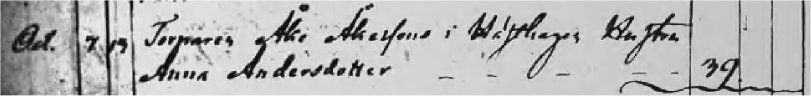 Oct. 7. 13 Torparen Åke Åkessons i Wästhagen Hustru
Anna Andersdotter - - - - 39